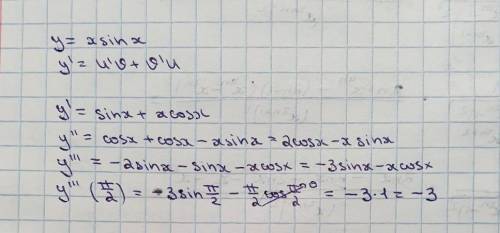 y = x sin x
y' = u'v + v'u
y' = sin x + x cos x
y'' = cos x + cos x - x sin x = 2cos x - x sin x
y''' = -2 sin x - sin x - x cos x = -3 sin x - x cos x
y''' (π/2) = -3 sin π/2 - π/2 cos π/2 0 = -3·1 = -3